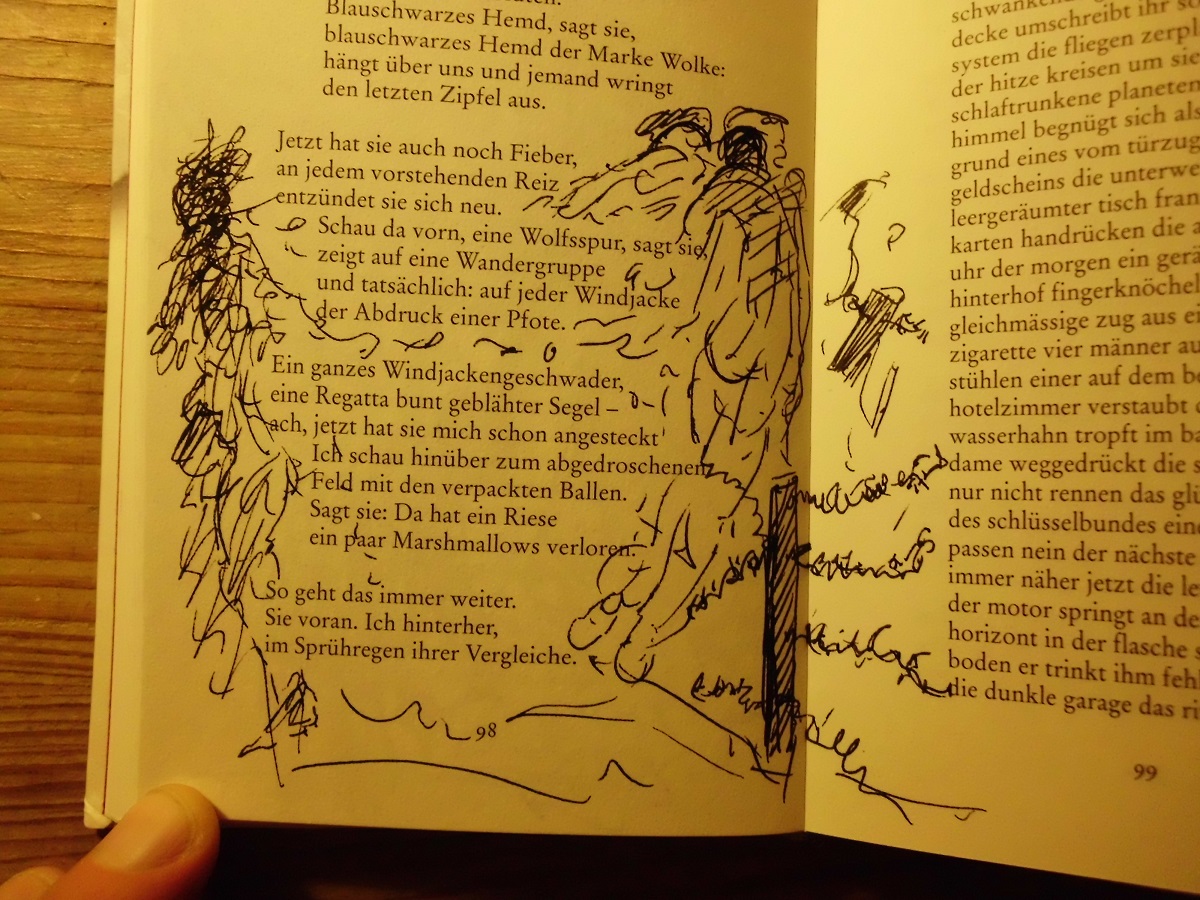 Blauschwarzes Hemd, sagt sie,
blauschwarzes Hemd der Marke Wolke:
hängt über uns und jemand wringt
den letzten Zipfel aus.
Jetzt hat sie auch noch Fieber,
an jedem vorstehenden Reiz
entzündet sie sich neu.
Schau da vorn, eine Wolfsspur, sagt sie,
zeigt auf eine Wandergruppe
und tatsächlich: auf jeder Windjacke
der Abdruck einer Pfote.
Ein ganzes Windjackengeschwader,
eine Regatta bunt geblähter Segel –
ach, jetzt hat sie mich schon angesteckt
Ich schau hinüber zum abgedroschenen
Feld mit den verpackten Ballen.
Sagt sie: Da hat ein Riese
ein paar Marshmallows verloren.
So geht das immer weiter.
Sie voran. Ich hinterher,
im Sprühregen ihrer Vergleiche.
98
decke umschreibt ihr
system die fliegen
der hitze kreisen um sie
schlaftrunkene planeten
himmel begnügt sich als
grund eines vom türzug
geldscheins die
leergeräumter tisch
karten handrücken die
uhr der morgen ein
hinterhof fingerknöchel
gleichmässige zug aus
zigarette vier männer
stühlen einer auf dem
hotelzimmer verstaubt
wasserhahn tropft im
dame weggedrückt die
nur nicht rennen das
des schlüsselbundes
passen nein der nächste
immer näher jetzt die
der motor springt an
horizont in der flasche
boden er trinkt ihm
die dunkle garage das
99